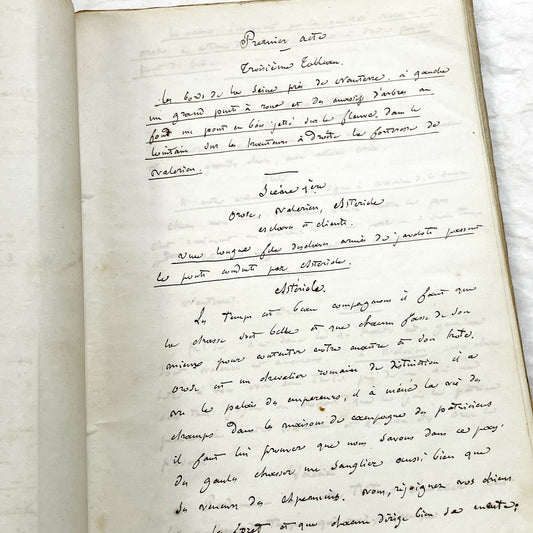 Premier acte
Troisième Tableau.
Les bords de la Seine près de Nanterre. à gauche
un grand puits à roue et des massifs d'arbres au
fond un pont en bois jeté sur le fleuve, dans le
lointain sur les hauteurs à droite la forteresse de
Valerien.
Scène 1ère
Orose, Valerien, Astériole
esclaves et clients.
Une longue file d'esclaves armés de javelots passent
le pont conduit par Astériole.
Astériole.
Le temps est beau compagnons il faut que
la chasse soit belle et que chacun fasse de son
mieux pour contenter notre maître et son hôte.
Orose est un chevalier romain de distinction il a
vu le palais des empereurs, il a mené la vie des
champs dans les maisons de campagne des patriciens
il faut lui prouver que nous savons dans ce pays
des gaules chasser un sanglier aussi bien que
les veneurs des Apennins. Vous, rejoignez vos chiens
la forêt et que chacun dirige bien sa meute.